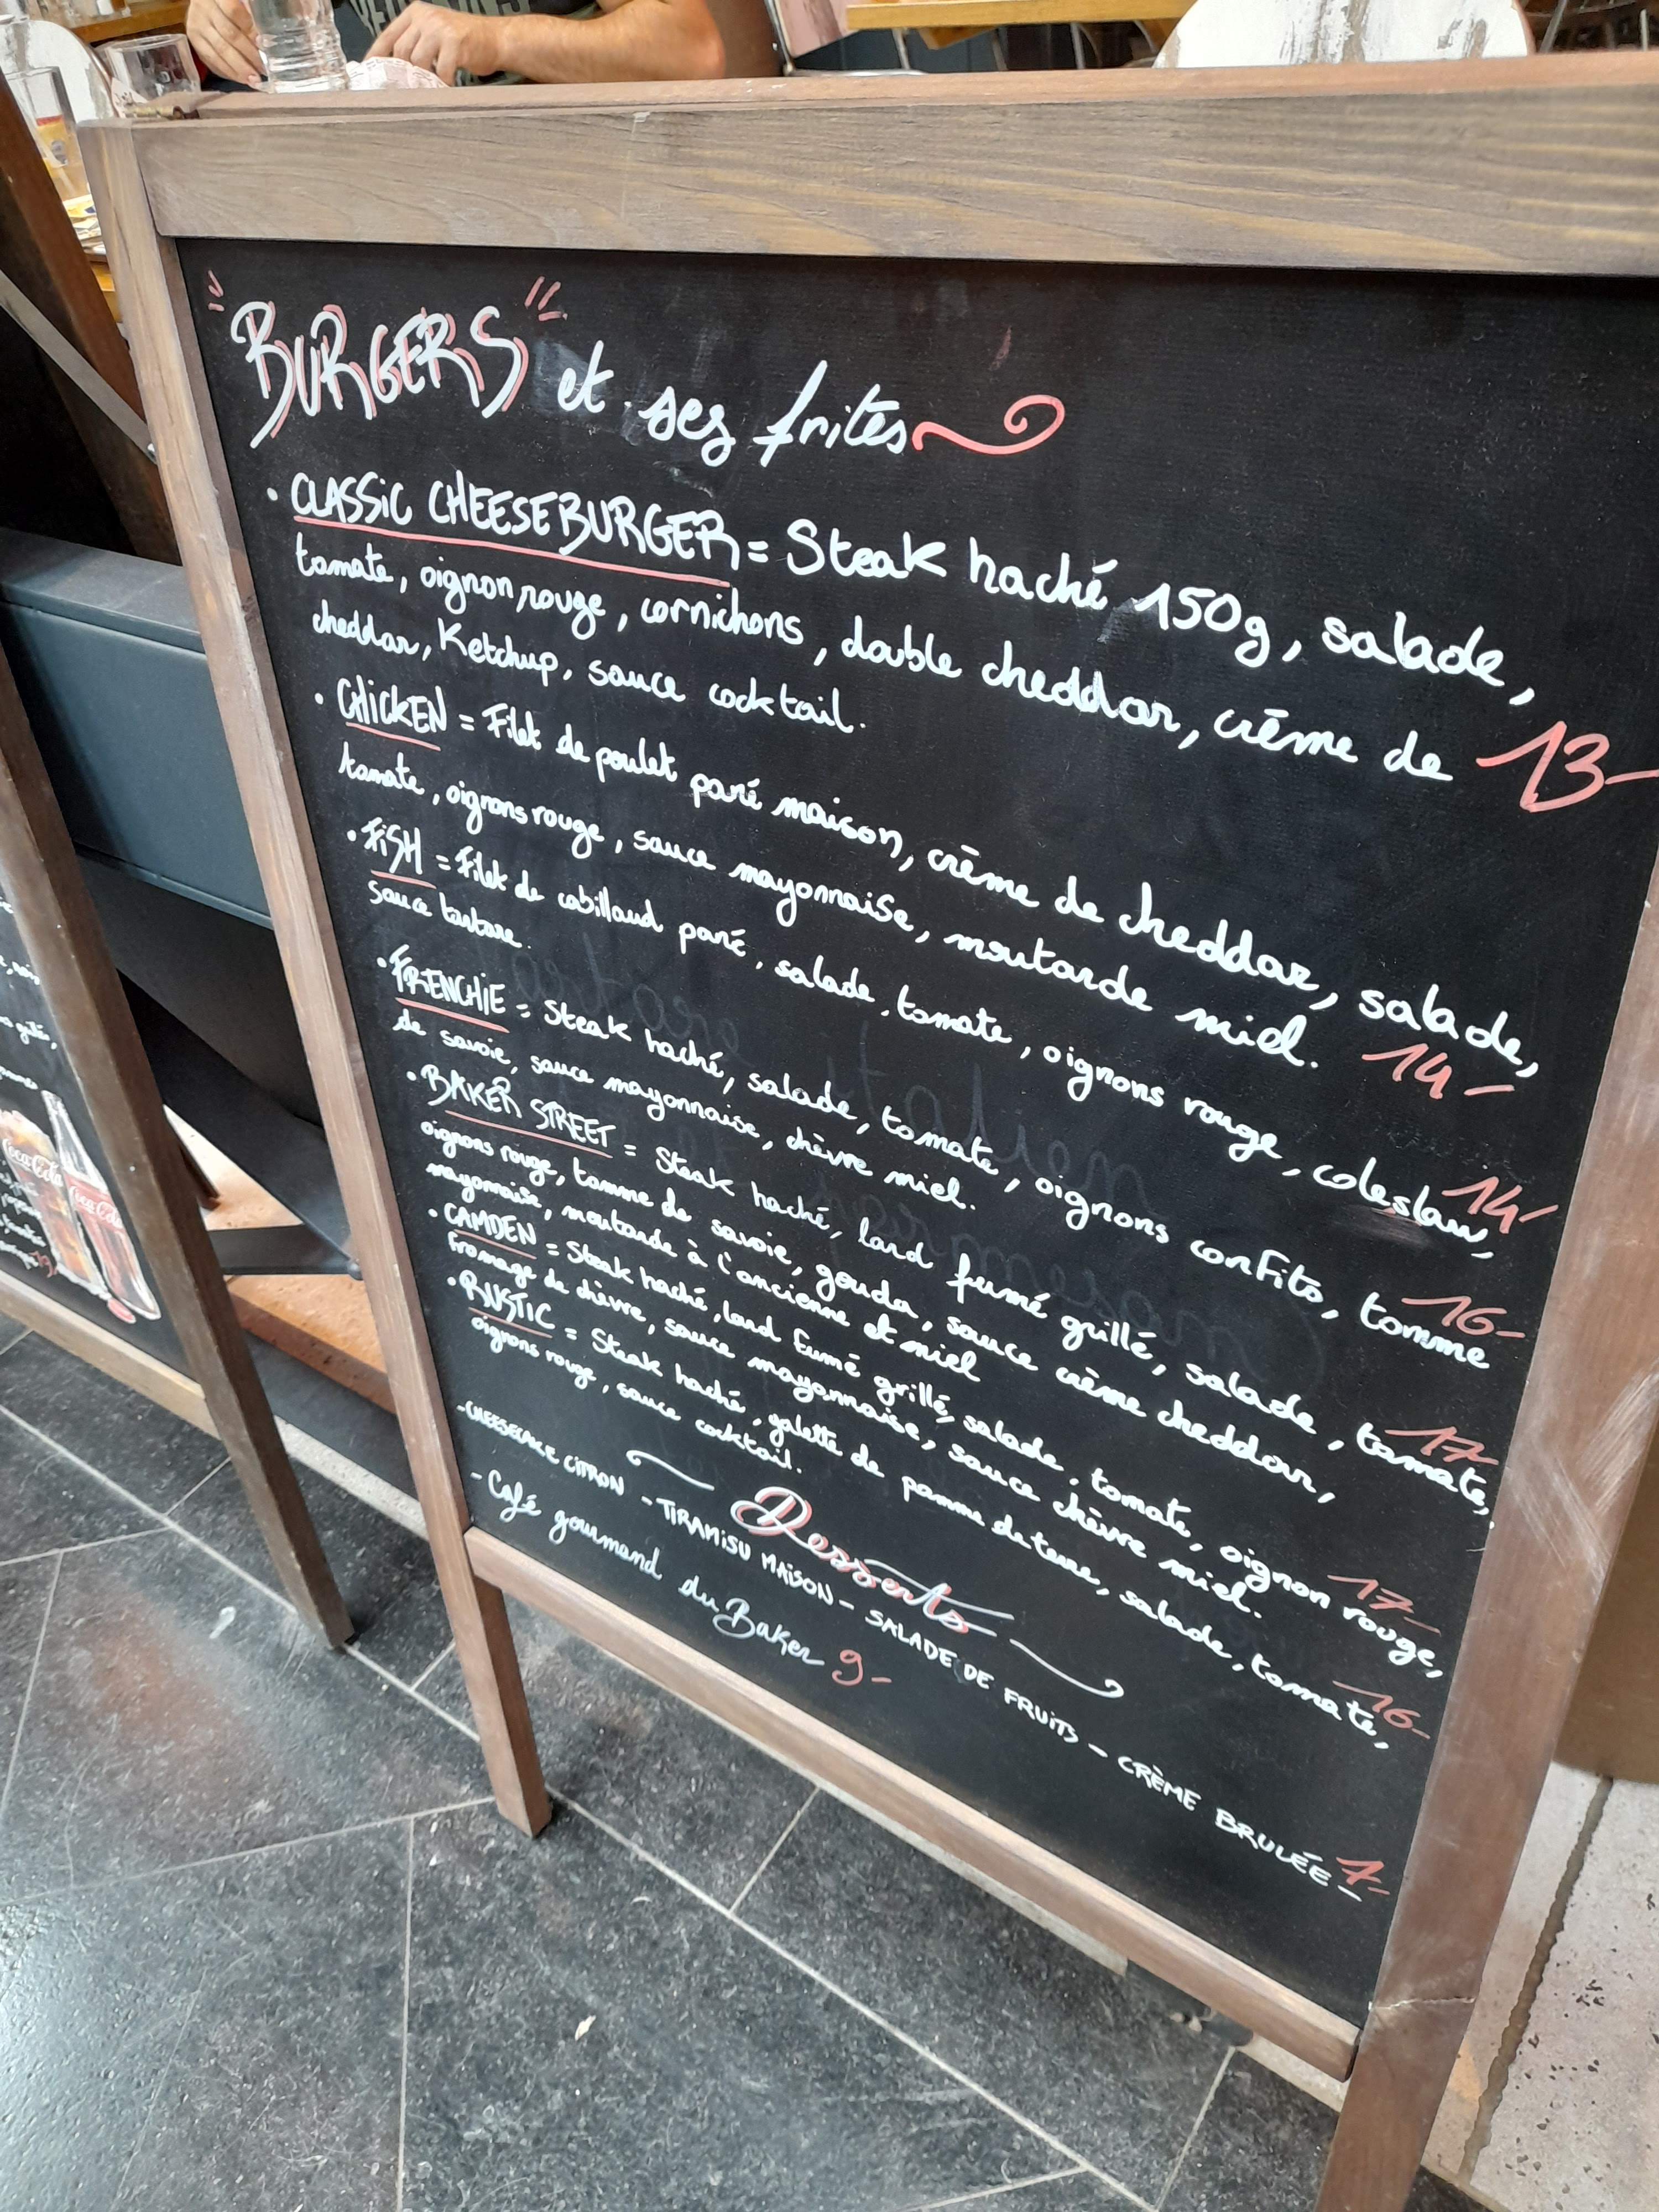 "BURGERS" et ses frites
• CLASSiC CHEESEBURGER = Steak haché 150g, salade,
tomate, oignon rouge, cornichons, double cheddar, crème de
cheddar, Ketchup, sauce cocktail. 13-
• CHiCKEN = Filet de poulet pané maison, crème de cheddar, salade,
tomate, oignons rouge, sauce mayonnaise, moutarde miel. 14-
• FiSH = Filet de cabillaud pané, salade, tomate, oignons rouge, coleslaw,
sauce tartare. 14-
• FRENCHiE = Steak haché, salade, tomate, oignons confits, tomme
de savoie, sauce mayonnaise, chèvre miel. 16-
• BAKER STREET = Steak haché, lard fumé grillé, salade, tomate,
oignons rouge, tomme de savoie, gouda, sauce crème cheddar,
mayonnaise, moutarde à l'ancienne et miel 17-
• CAMDEN = Steak haché, lard fumé grillé, salade, tomate, oignon rouge,
fromage de chèvre, sauce mayonnaise, sauce chèvre miel. 17-
• RUSTiC = Steak haché, galette de pomme de terre, salade, tomate,
oignons rouge, sauce cocktail. 16-
Desserts
- CHEESECAKE CiTRON - TiRAMiSU MAiSON - SALADE DE FRUiTS - CRÈME BRULÉE - 7-
- Café gourmand du Baker 9-
Coca-Cola
Coca-Cola